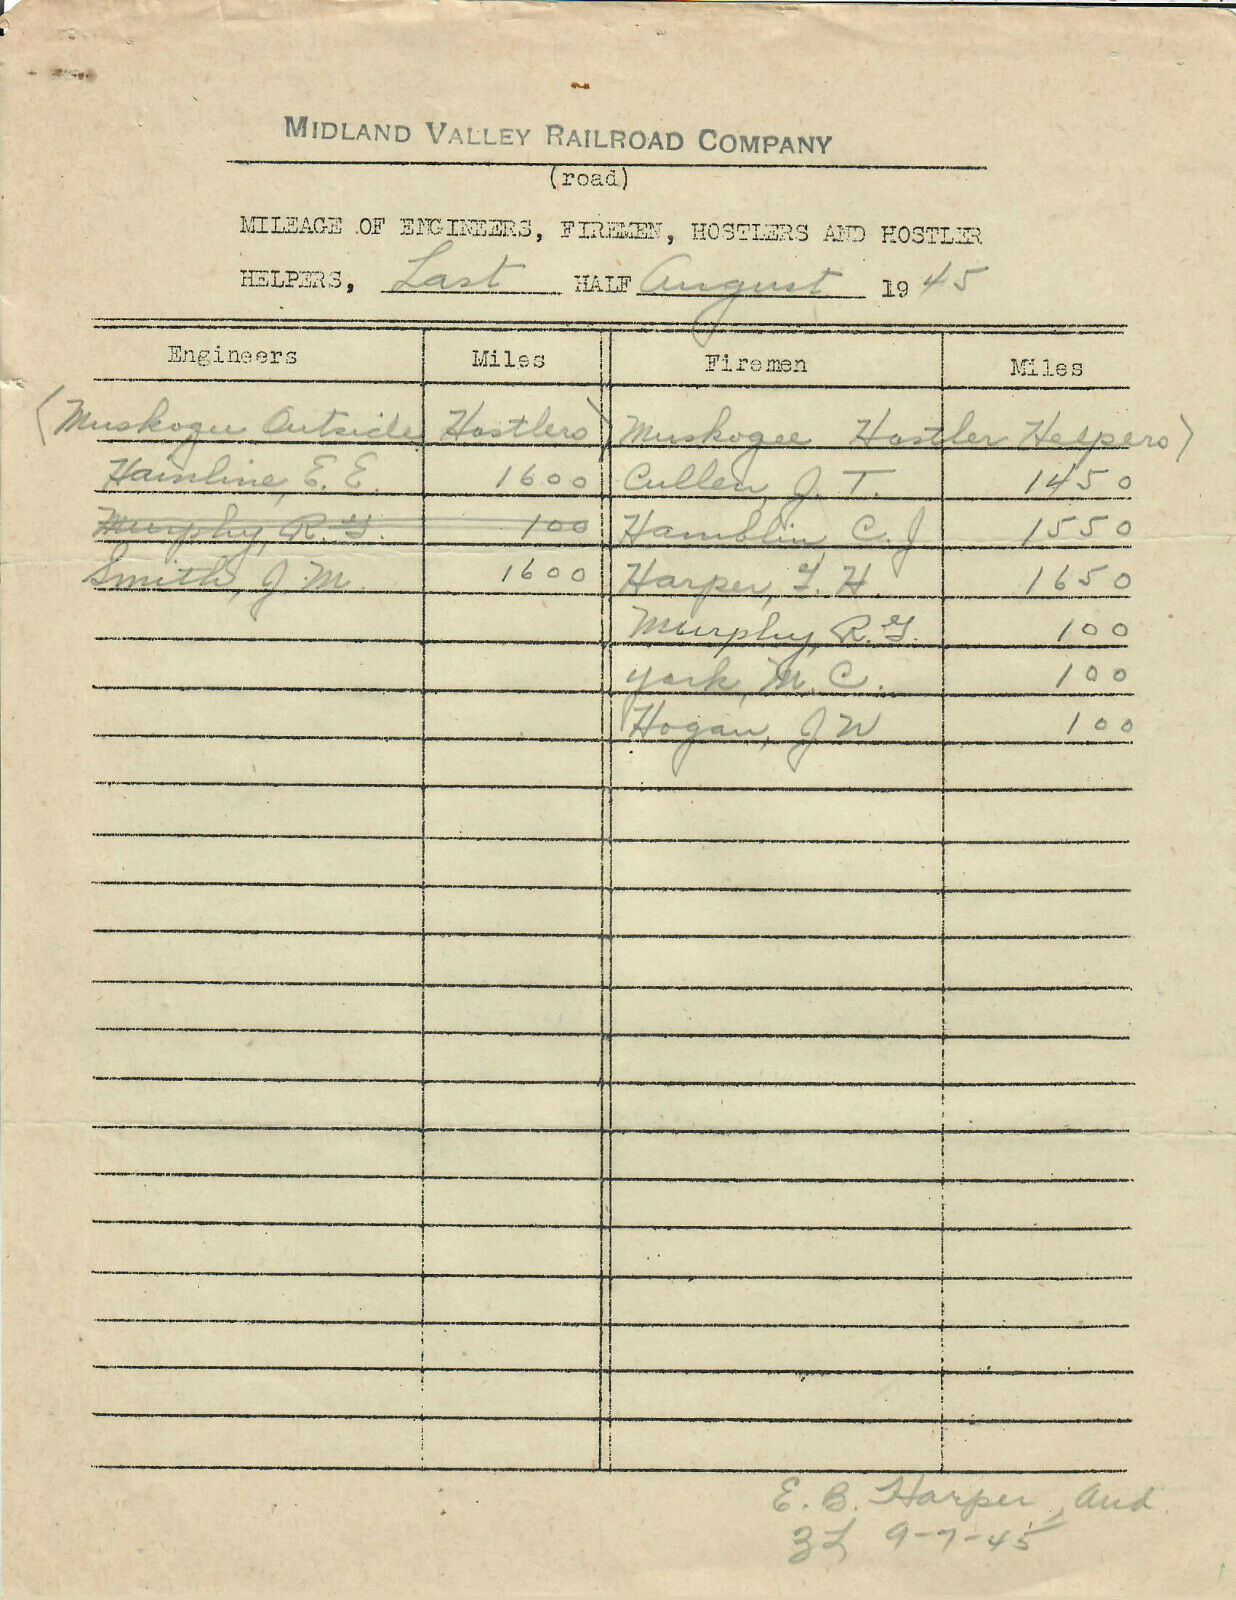 MIDLAND VALLEY RAILROAD COMPANY
(road)
MILEAGE OF ENGINEERS, FIREMEN, HOSTLERS AND HOSTLER
HELPERS, Last HALF August 1945
Engineers Miles Firemen Miles
(Muskogee Outside Hostlers) Muskogee Hostler Helpers)
Hainline, E. E. 1600 Cullen, J. T. 1450
Murphy, R. G. 100 Hamblin, C. J 1550
Smith, J. M. 1600 Harper, F. H. 1650
Murphy, R. G. 100
York, M. C. 100
Hogan, J W 100
E. B. Harper, Aud.
9-7-45